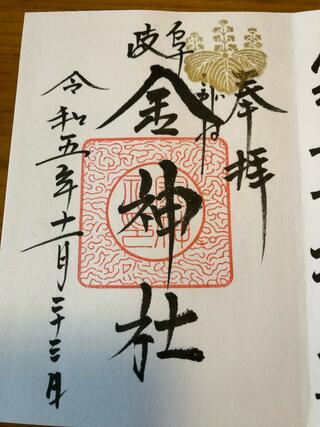 奉拝
岐阜
こがね
金神社
令和五年十一月二十三日